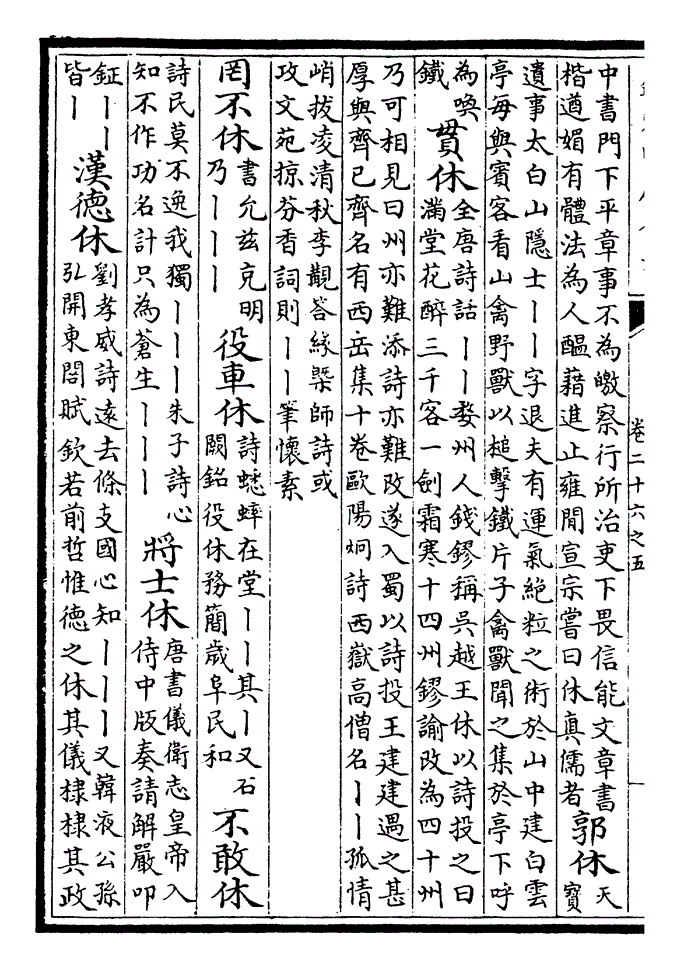 卷二十六之五
中書門下平章事不為皦察行所治吏下畏信能文章書
楷遒媚有體法為人醞藉進止雍閒宣宗嘗曰休真儒者
郭休
天
寶
遺事太白山隱士丨丨字退夫有運氣絶粒之術於山中建白雲
亭每與賓客看山禽野獸以槌擊鐵片子禽獸聞之集於亭下呼
為喚
鐵
貫休
全唐詩話丨丨婺州人錢鏐稱吳越王休以詩投之曰
滿堂花醉三千客一劍霜寒十四州鏐諭改為四十州
乃可相見曰州亦難添詩亦難改遂入蜀以詩投王建建遇之甚
厚與齊已齊名有西岳集十卷歐陽炯詩西嶽高僧名丨丨孤情
峭拔凌清秋李觀答緣槩師詩或
攻文苑掠芬香詞則丨丨筆懷素
罔不休
書允兹克明
乃丨丨丨
役車休
詩蟋蟀在堂丨丨其丨又石
闕銘役休務簡歲阜民和
不敢休
詩民莫不逸我獨丨丨丨朱子詩心
知不作功名計只為蒼生丨丨丨
將士休
唐書儀衛志皇帝入
侍中版奏請解嚴叩
鉦丨丨
皆丨
漢德休
劉孝威詩遠去條支國心知丨丨丨又韓液公孫
弘開東閤賦欽若前哲惟德之休其儀棣棣其政